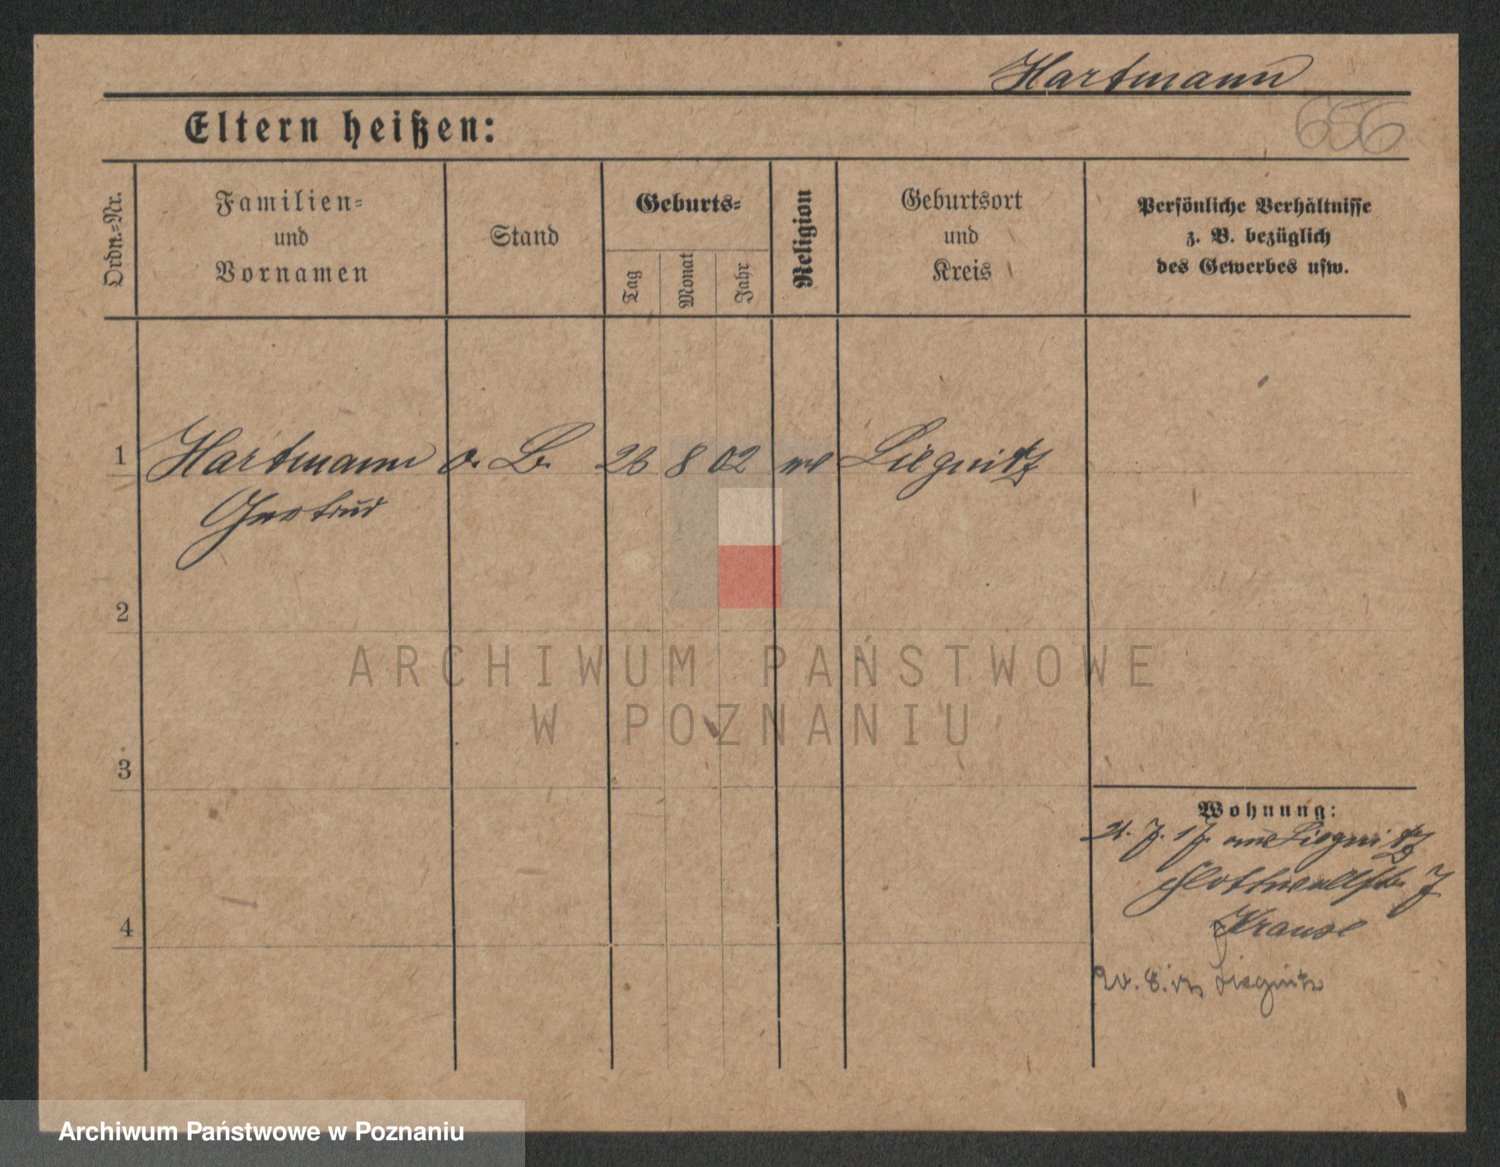 Hartmann
656
Eltern heißen:
Ordn.-Nr.
Familien-
und
Vornamen
Stand
Geburts-
Tag
Monat
Jahr
Religion
Geburtsort
und
Kreis
Persönliche Verhältnisse
z. B. bezüglich
des Gewerbes usw.
1 Hartmann o. B. 28 8 02 Liegnitz
Gertrud
2
3
4
Wohnung:
Liegnitz
7
Krause
Liegnitz
ARCHIWUM PAŃSTWOWE
W POZNANIU
Archiwum Państwowe w Poznaniu